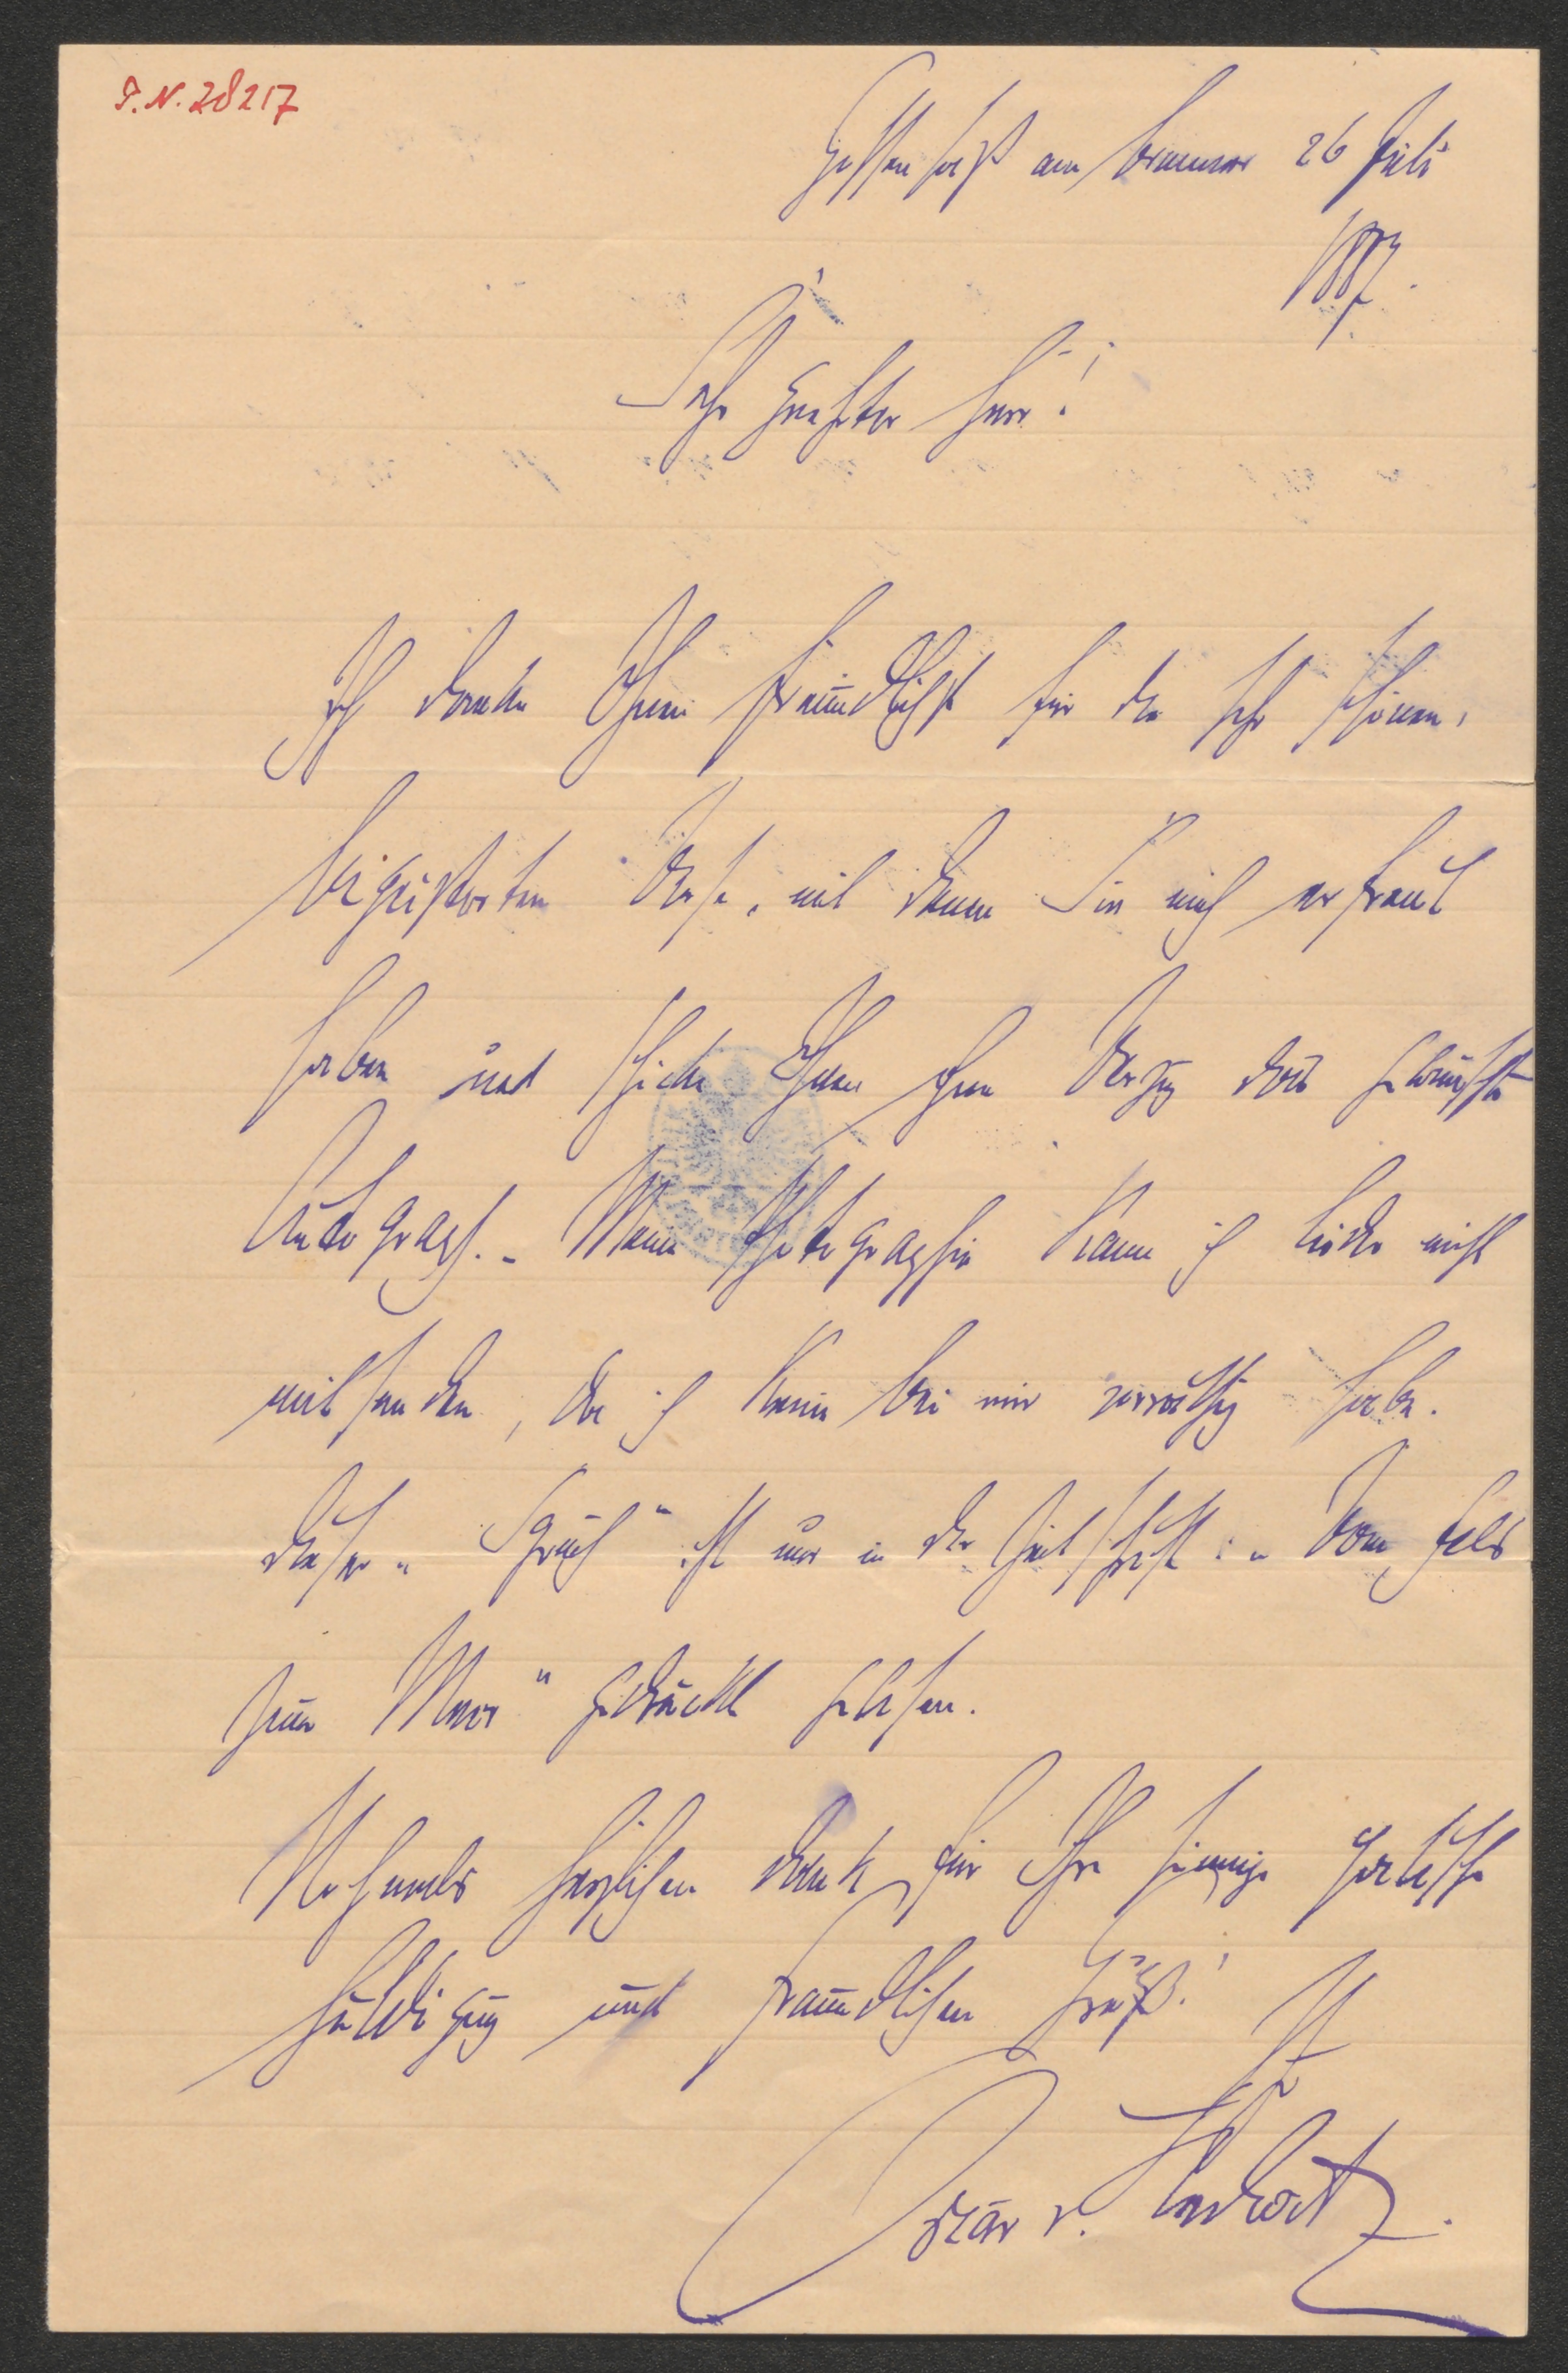 I.N. 28217
Gossensaß am Brenner 26 Juli
1887.
Sehr geehrter Herr!
Ich danke Ihnen freundlichst für die sehr schönen,
begeisterten Verse, mit denen Sie mich erfreut
haben und schicke Ihnen hier das gewünschte
Autograph. – Meine Photographie kann ich leider nicht
mitsenden, da ich keine bei mir vorräthig habe.
Dieser „Spruch" ist nur in der Zeitschrift: „Vom Fels
zum Meer" gedruckt gewesen.
Nochmals herzlichen Dank für Ihre sinnige poetische
Huldigung und freundlichen Gruß!
Oscar v. Redwitz.